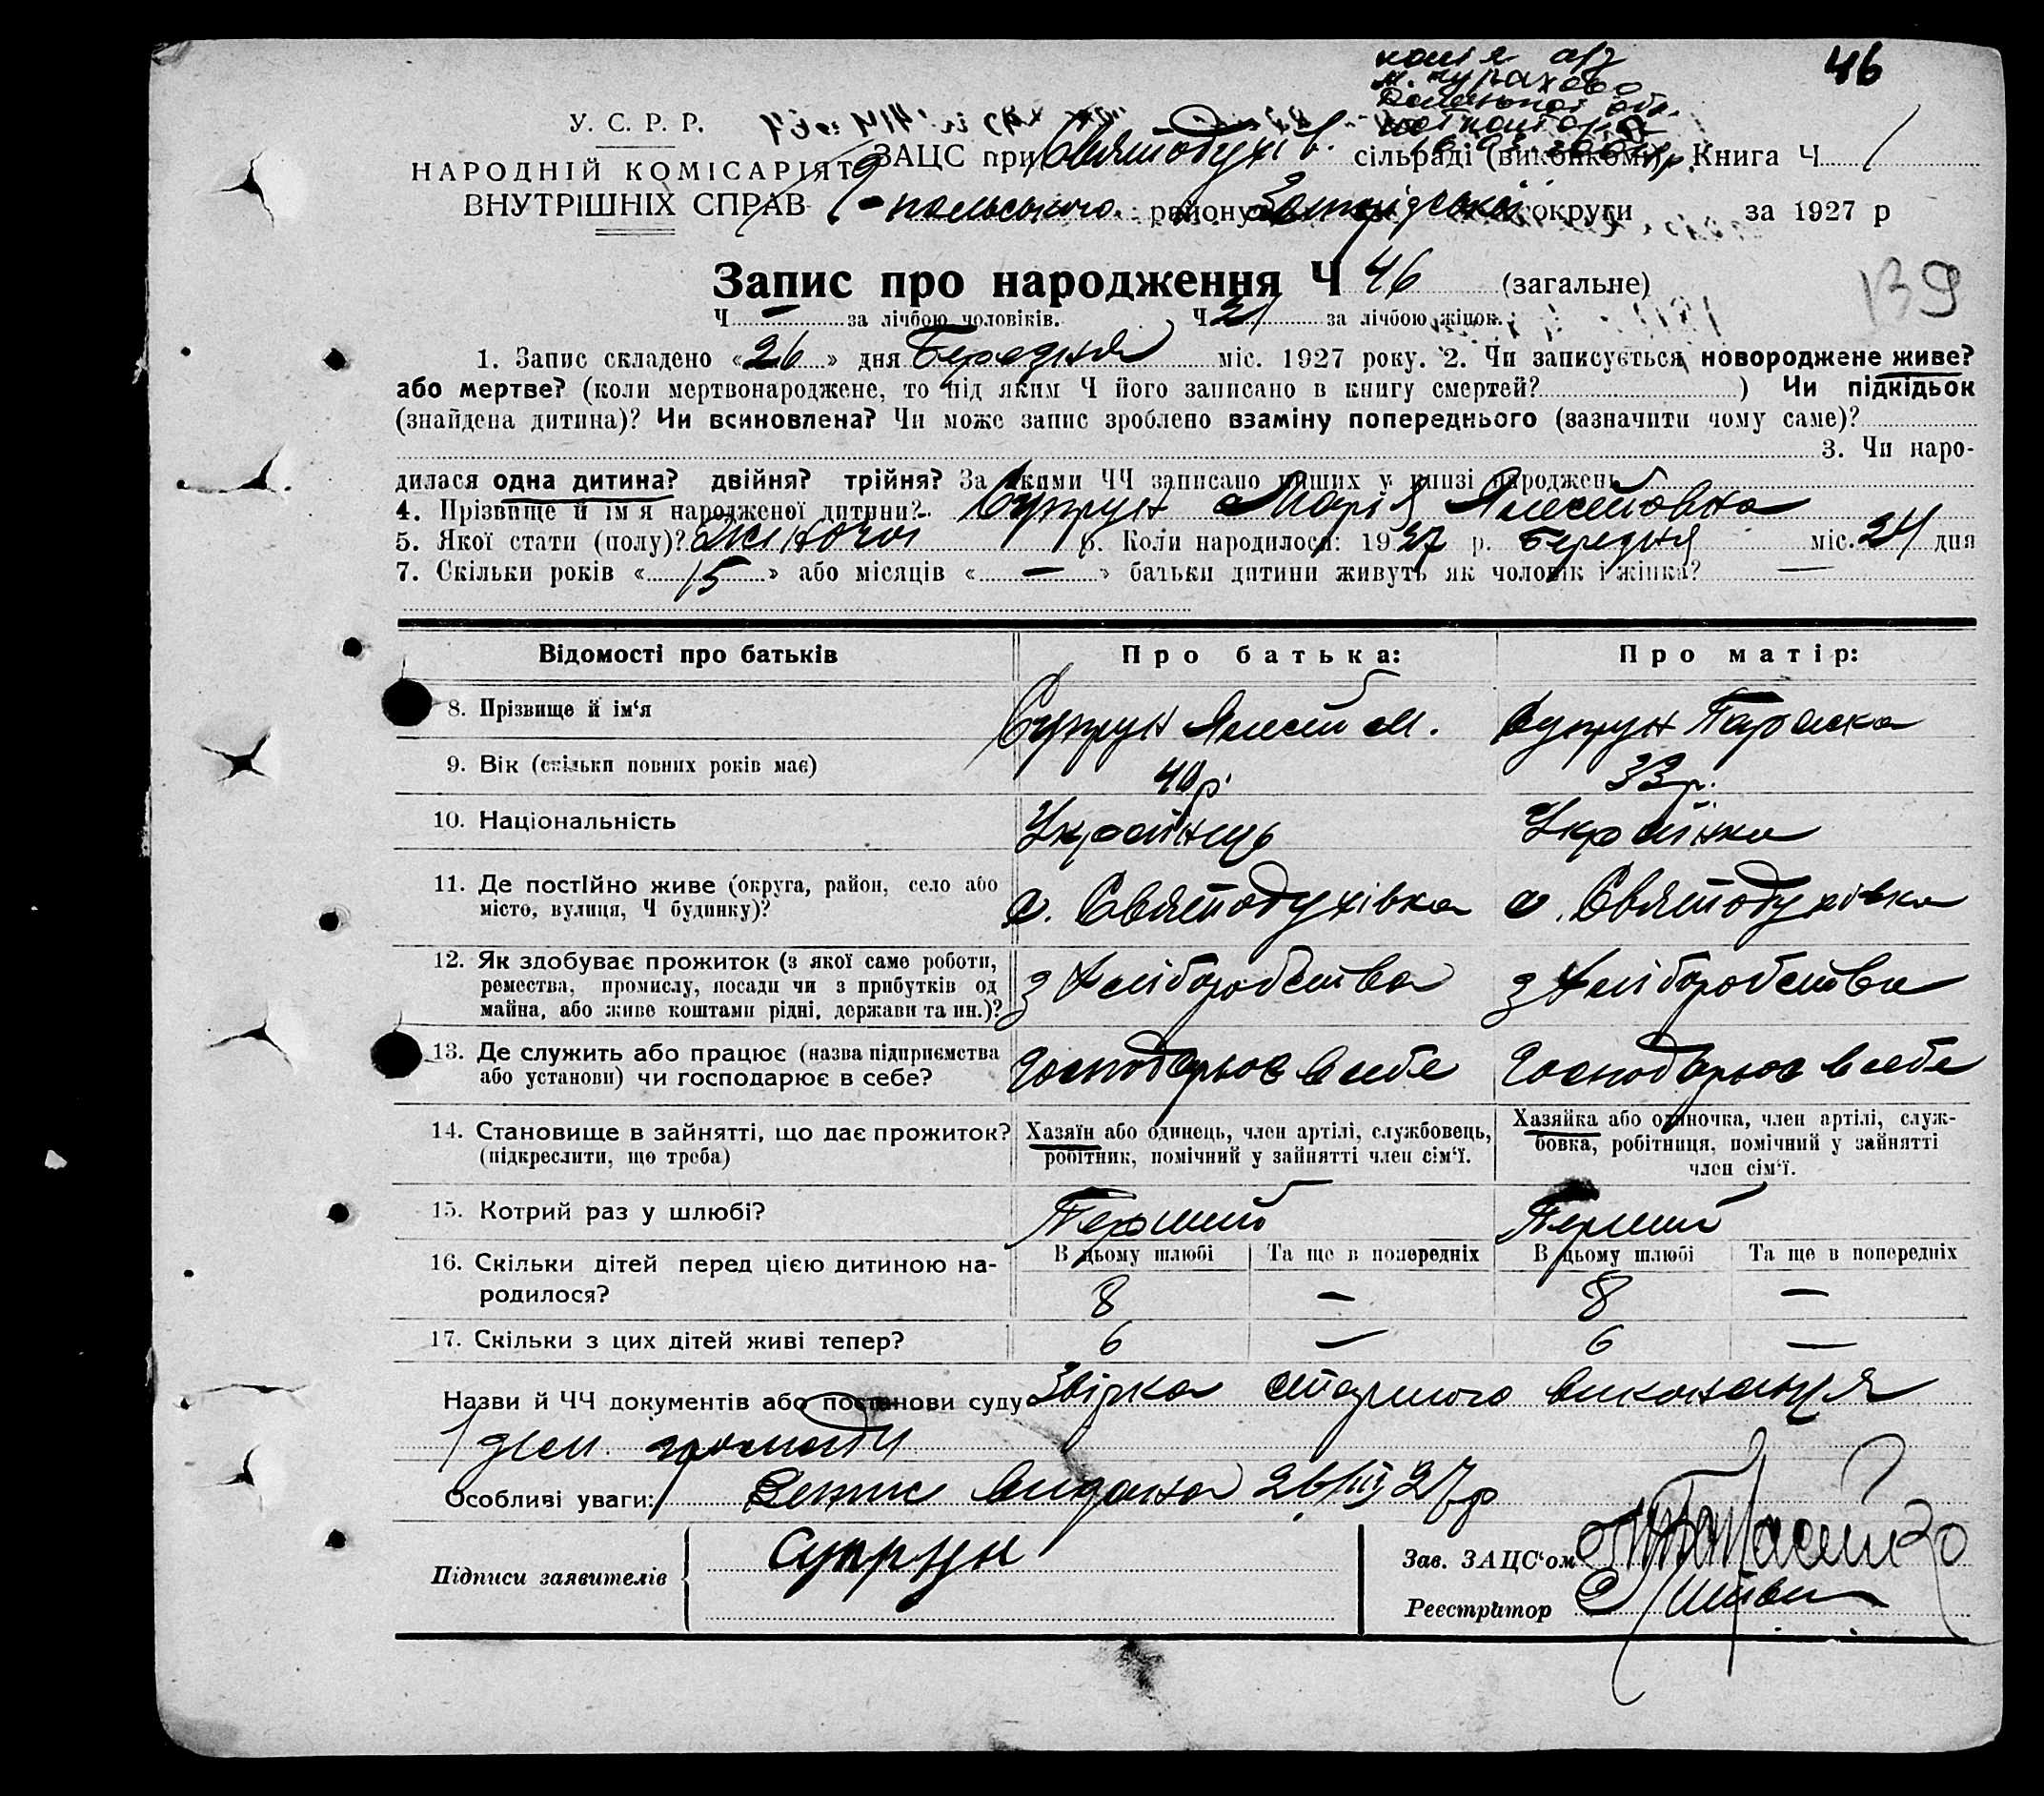 46
копія а/з
м. Курахово
Донецької обл.
нотконтора
У. С. Р. Р.
НАРОДНІЙ КОМІСАРІЯТ
ВНУТРІШНІХ СПРАВ
ЗАЦС при Святодухів. сільраді (виконкомі). Книга Ч 1
-польського району Запорізської округи за 1927 р
Запис про народження Ч 46 (загальне)
139
Ч — за лічбою чоловіків. Ч 21 за лічбою жінок.
1. Запис складено «26» дня Березня міс. 1927 року. 2. Чи записується новороджене живе?
або мертве? (коли мертвонароджене, то під яким Ч його записано в книгу смертей? ) Чи підкідьок
(знайдена дитина)? Чи всиновлена? Чи може запис зроблено взаміну попереднього (зазначити чому саме)?
3. Чи наро-
дилася одна дитина? двійня? трійня? За якими ЧЧ записано инших у книзі народжень
4. Прізвище й ім'я народженої дитини? Супрун Марія Алексіовна
5. Якої стати (полу)? Жіночої 6. Коли народилося: 1927 р. Березня міс. 24 дня
7. Скільки років «15» або місяців «—» батьки дитини живуть як чоловік і жінка? —
Відомості про батьків Про батька: Про матір:
8. Прізвище й ім'я Супрун Алексій М. Супрун Параска
9. Вік (скільки повних років має) 40 р. 33 р.
10. Національність Українець Українка
11. Де постійно живе (округа, район, село або
місто, вулиця, Ч будинку)? с. Святодухівка с. Святодухівка
12. Як здобуває прожиток (з якої саме роботи,
ремества, промислу, посади чи з прибутків од
майна, або живе коштами рідні, держави та ин.)? з Хліборобства з Хліборобства
13. Де служить або працює (назва підприємства
або установи) чи господарює в себе? Господарює в себе Господарює в себе
14. Становище в зайнятті, що дає прожиток?
(підкреслити, що треба)
Хазяїн або одинець, член артілі, службовець,
робітник, помічний у зайнятті член сім'ї.
Хазяйка або одиночка, член артілі, служ-
бовка, робітниця, помічний у зайнятті
член сім'ї.
15. Котрий раз у шлюбі? Перший Перший
В цьому шлюбі Та ще в попередніх В цьому шлюбі Та ще в попередніх
16. Скільки дітей перед цією дитиною на-
родилося? 8 — 8 —
17. Скільки з цих дітей живі тепер? 6 — 6 —
Назви й ЧЧ документів або постанови суду Звірка старшого виконавця
громади
Особливі уваги: видана 26/III 27 р
Підписи заявителів Супрун
Зав. ЗАЦС'ом
Реєстратор